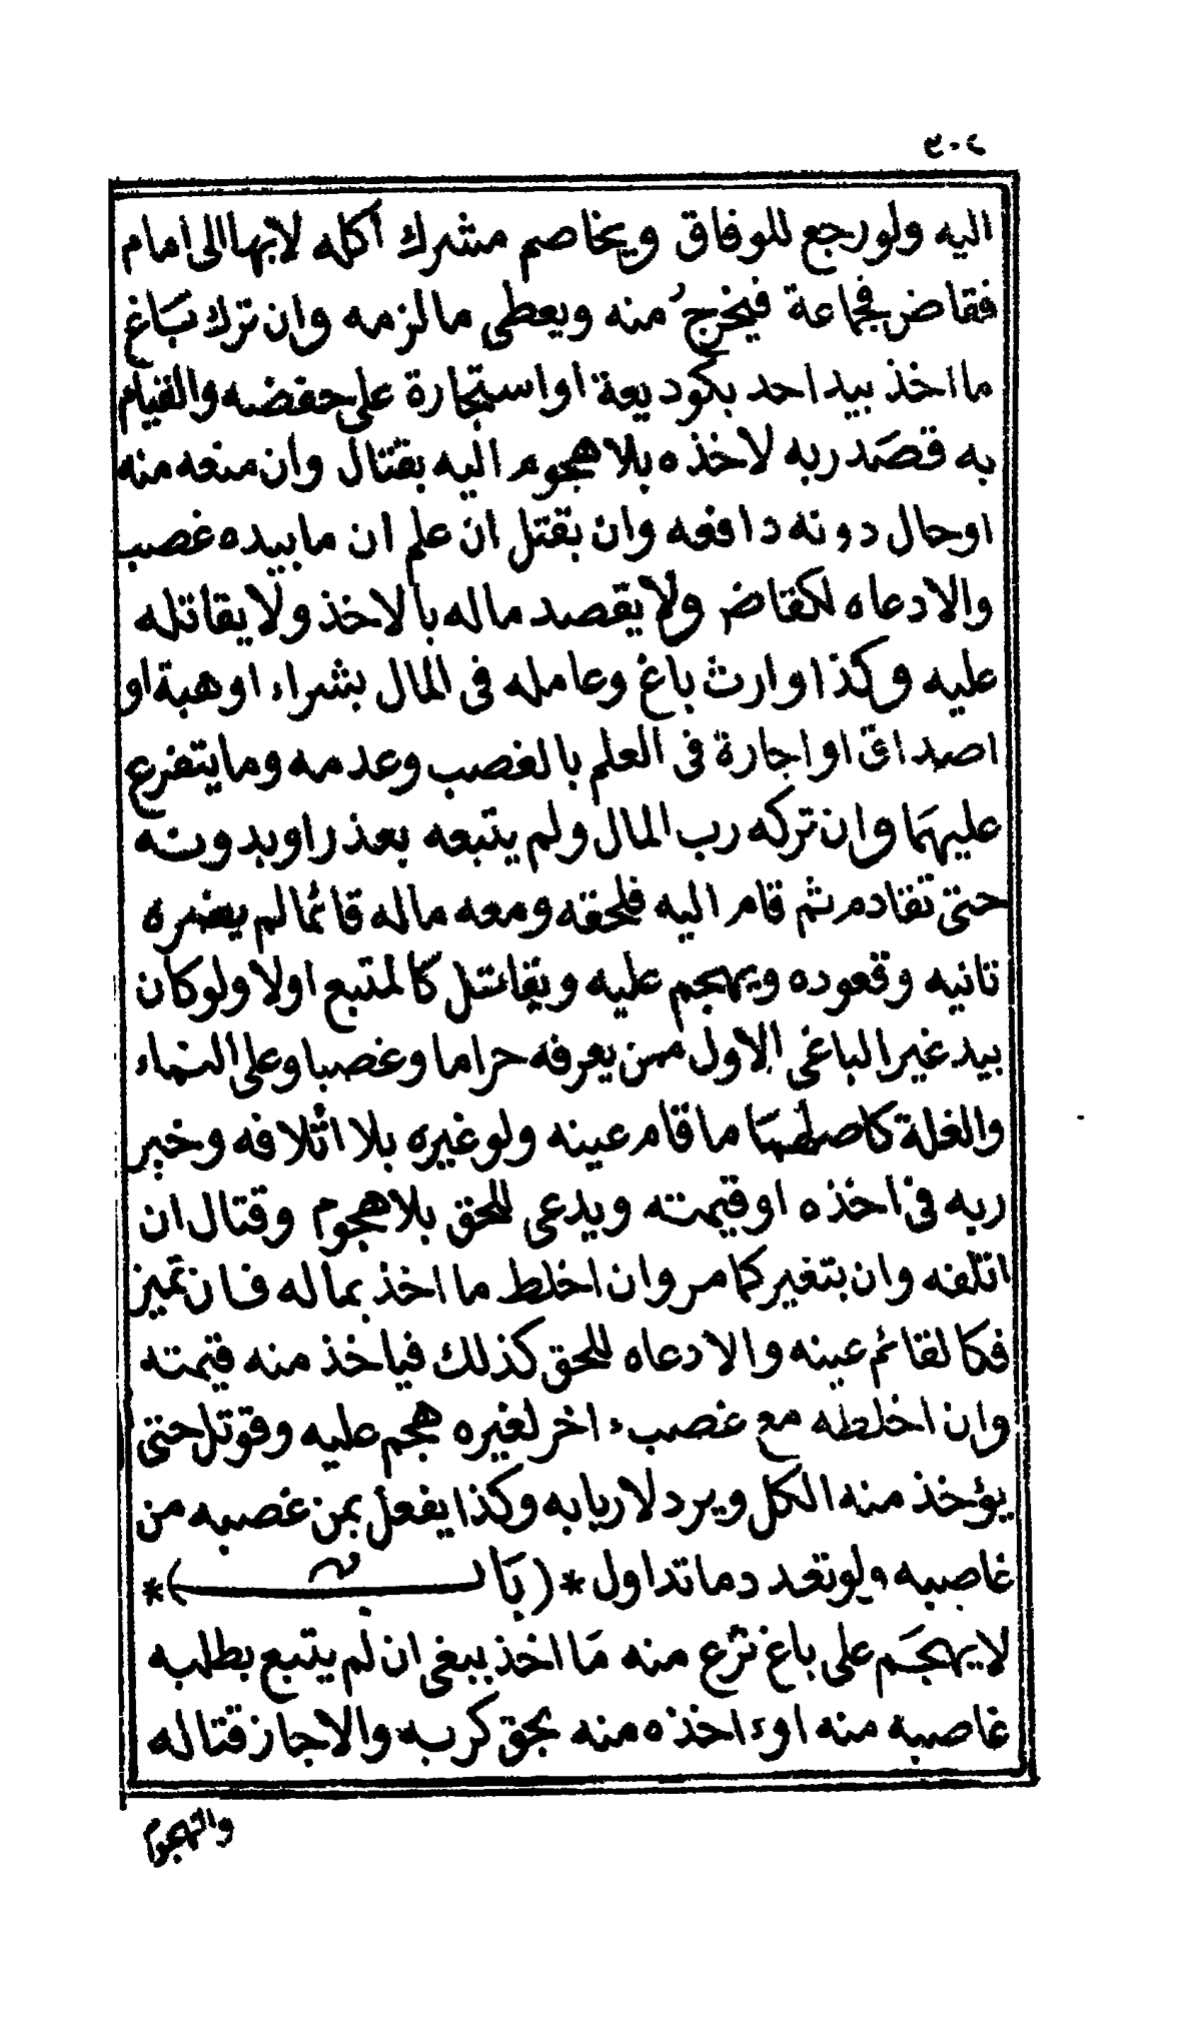 ٣٠٤
اليه ولو رجع للوفاق ويخاصم مشرك اكله لابها الى امام
فقاض فجماعة فيخرج منه ويعطى مالزمه وان ترك بَاغ
ما اخذ بيد احد بكوديعة او استجارة على حفضه والقيام
به قصَد ربه لاخذه بلاهجوم اليه بقتال وان منعه منه
اوحال دونه دافعه وان بقتل ان علم ان مابيده غصب
والادعاه لكقاض ولايقصد ماله بالاخذ ولايقاتله
عليه وكذا وارث باغ وعامله فى المال بشراء اوهبة او
اصداق او اجارة فى العلم بالغصب وعدمه ومايتفرع
عليهمَا وان تركه رب المال ولم يتبعه بعذر اوبدونه
حتى تقادم ثم قام اليه فلحقه ومعه ماله قائمالم يضره
تانيه وقعوده ويهجم عليه ويقاتل كالمتبع اولا ولوكان
بيد غير الباغى الاول ممن يعرفه حراما وغصبا وعلى النماء
والغلة كاصلهمَا ماقام عينه ولوغيره بلا اتلافه وخير
ربه فى اخذه اوقيمته ويدعى للحق بلاهجوم وقتال ان
اتلفه وان بتغير كما مر وان اخلط ما اخذ بماله فان تميز
فكالقائم عينه والادعاه للحق كذلك فياخذ منه قيمته
وان اخلطه مع غصبء اخر لغيره هجم عليه وقوتل حتى
يؤخذ منه الكل ويرد لاربابه وكذا يفعل بمن غصبه من
غاصبه ولوتعدد ماتداول *(بَاب)*
لايهجَم على باغ نزع منه مَا اخذ ببغى ان لم يتبع بطلبه
غاصبه منه اوء اخذه منه بحق كربه والاجاز قتاله
والهجوم